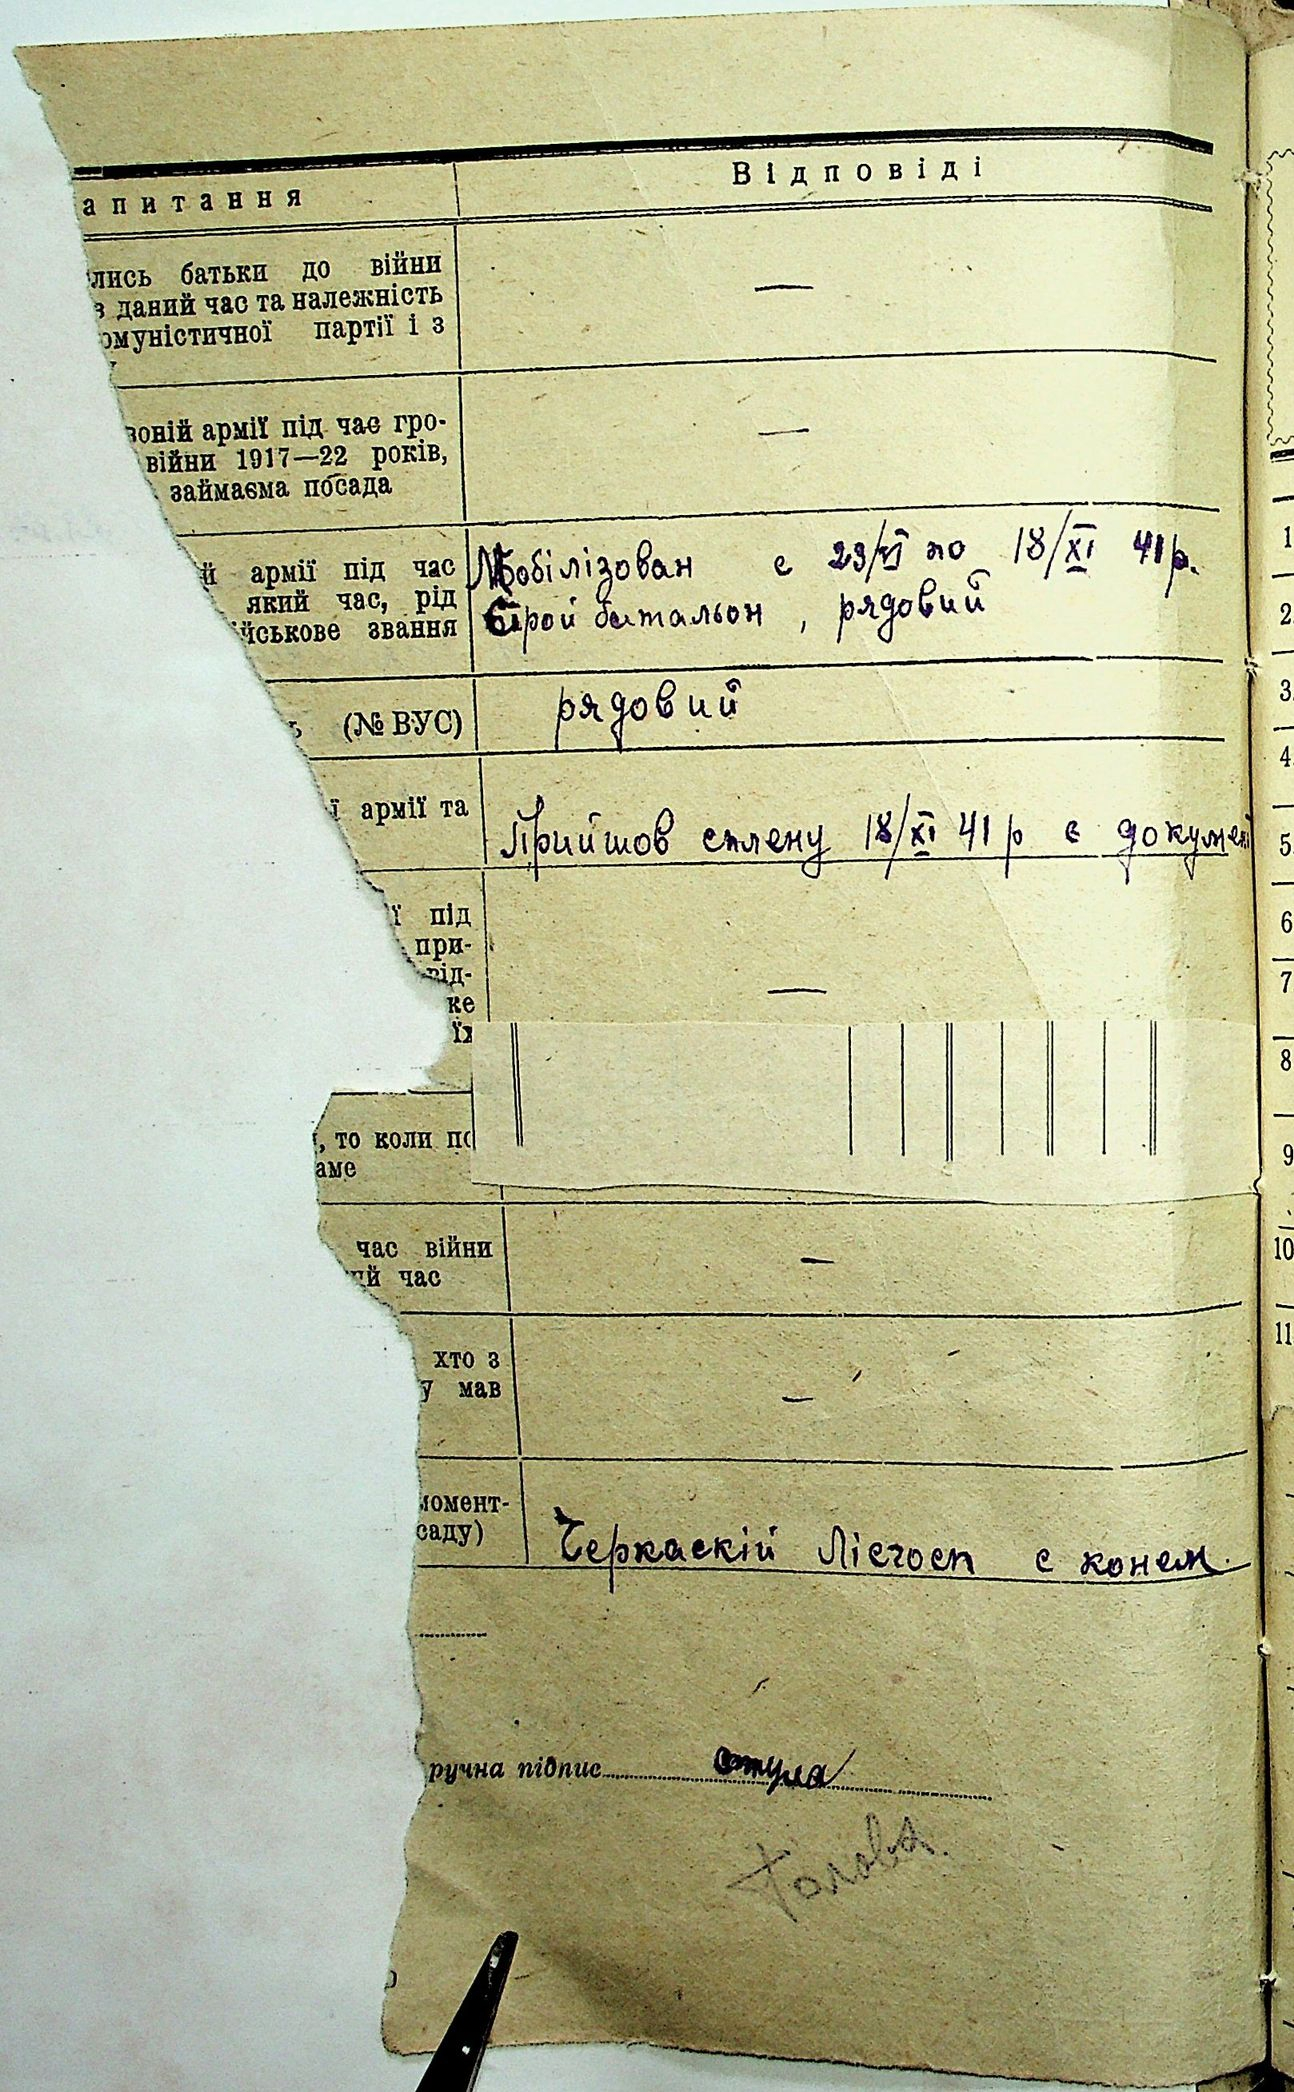 апитання
Відповіді
лись батьки до війни
в даний час та належність
омуністичної партії і з
—
воній армії під час гро-
війни 1917—22 років,
займаєма посада
—
й армії під час
який час, рід
ійськове звання
Мобілізован с 23/VI по 18/XI 41 р.
Строй батальон, рядовий
ь (№ ВУС)
рядовий
ї армії та
Прийшов сплену 18/XI 41 р с докумен
ї під
при-
від-
же
їх
—
, то коли по
аме
час війни
ий час
—
хто з
у мав
—
момент-
саду)
Черкаскій Лісгосп с конем.
ручна підпис
1
2
3
4
5
6
7
8
9
10
11